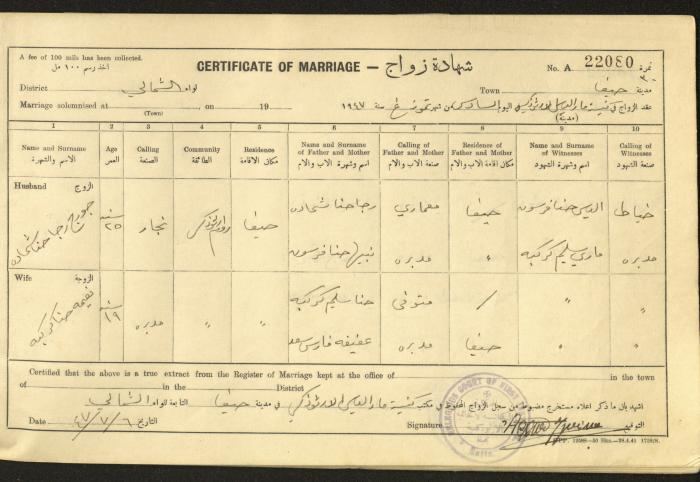 A fee of 100 mils has been collected.
أخذ رسم ١٠٠ مل
CERTIFICATE OF MARRIAGE – شهادة زواج
No. A. 22080 نمرة
District لواء الشمالي
Town مدينة حيفا
Marriage solemnised at , on 19
(Town)
عقد الزواج في كنيسة مار الياس الارثوذكسي اليوم السادس من شهر تموز سنة ١٩٤٧
(مدينة)
1 2 3 4 5 6 7 8 9 10
Name and Surname الاسم والشهرة
Age العمر
Calling الصنعة
Community الطائفة
Residence مكان الاقامة
Name and Surname of Father and Mother اسم وشهرة الاب والام
Calling of Father and Mother صنعة الاب والام
Residence of Father and Mother مكان اقامة الاب والام
Name and Surname of Witnesses اسم وشهرة الشهود
Calling of Witnesses صنعة الشهود
Husband الزوج
جورج رجا حنا شحاده
سنة ٢٥
نجار
روم ارثوذكس
حيفا
رجا حنا شحاده
معماري
حيفا
الياس حنا فرسون
خياط
حنا فرسون
مدبره
"
ماري سليم كركبه
مدبره
Wife الزوجة
نعيمه حنا كركبه
سنة ١٩
مدبره
"
"
حنا سليم كركبه
متوفي
/
"
"
عفيفه فارس سعد
مدبره
حيفا
"
"
Certified that the above is a true extract from the Register of Marriage kept at the office of in the town
of in the District
اشهد بان ما ذكر اعلاه مستخرج مضبوط من سجل الزواج المحفوظ في مكتب كنيسة مار الياس الارثوذكسي في مدينة حيفا التابعة للواء الشمالي
Date التاريخ ٦/٧/٤٧
Signature التوقيع
Haifa.